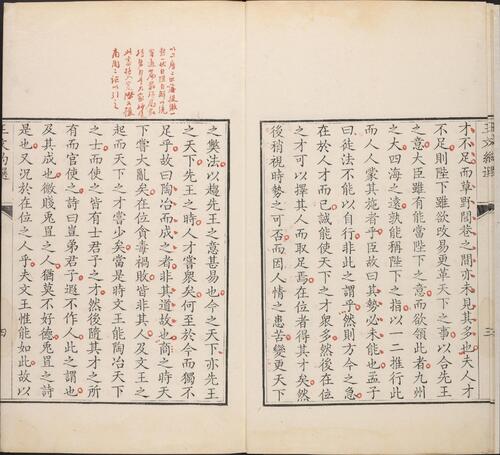 才不足而草野閭巷之間亦未見其多也夫人才
不足則陛下雖欲改易更革天下之事以合先王
之意大臣雖有能當陛下之意而欲領此者九州
之大四海之遠孰能稱陛下之指以一二推行此
而人人蒙其施者乎臣故曰其勢必未能也孟子
曰徒法不能以自行非此之謂乎然則方今之急
在於人才而已誠能使天下之才衆多然後在位
之才可以擇其人而取足焉在位者得其才矣然
後稍視時勢之可否而因人情之患苦變更天下
之獘法以趨先王之意甚易也今之天下亦先王
之天下先王之時人才嘗衆矣何至於今而獨不
足乎故曰陶冶而成之者非其道故也商之時天
下嘗大亂矣在位貪毒禍敗皆非其人及文王之
起而天下之才嘗少矣當是時文王能陶冶天下
之士而使之皆有士君子之才然後隨其才之所
有而官使之詩曰豈弟君子遐不作人此之謂也
及其成也微賤兎罝之人猶莫不好德兎罝之詩
是也又況於在位之人乎夫文王惟能如此故以
王文約選
四